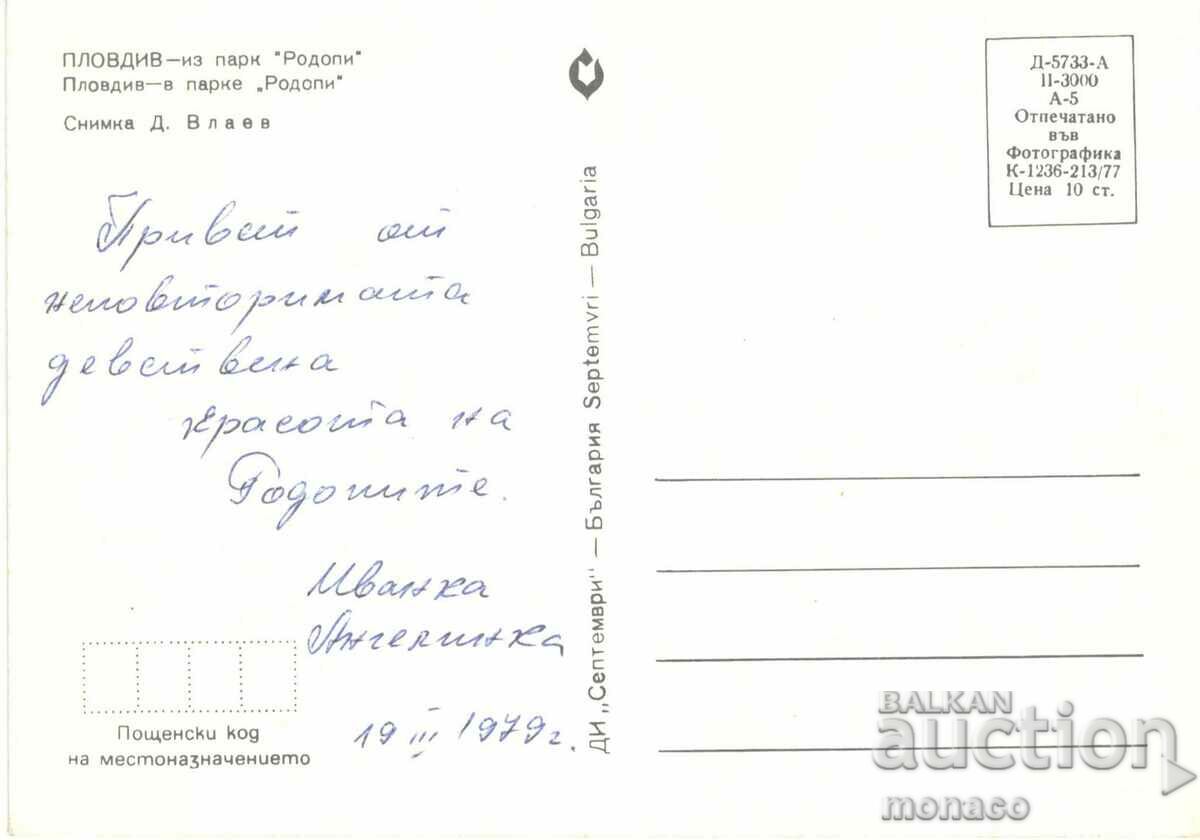 ПЛОВДИВ—из парк "Родопи"
Пловдив—в парке „Родопи"
Снимка Д. Влаев
Привет от
неповторимата
девствена
красота на
Родопите.
Иванка
Ангелинка
19 III 1979 г.
Пощенски код
на местоназначението
ДИ „Септември" — България Septemvri — Bulgaria
Д-5733-А
II-3000
А-5
Отпечатано
във
Фотографика
К-1236-213/77
Цена 10 ст.
BALKAN
auction
monaco